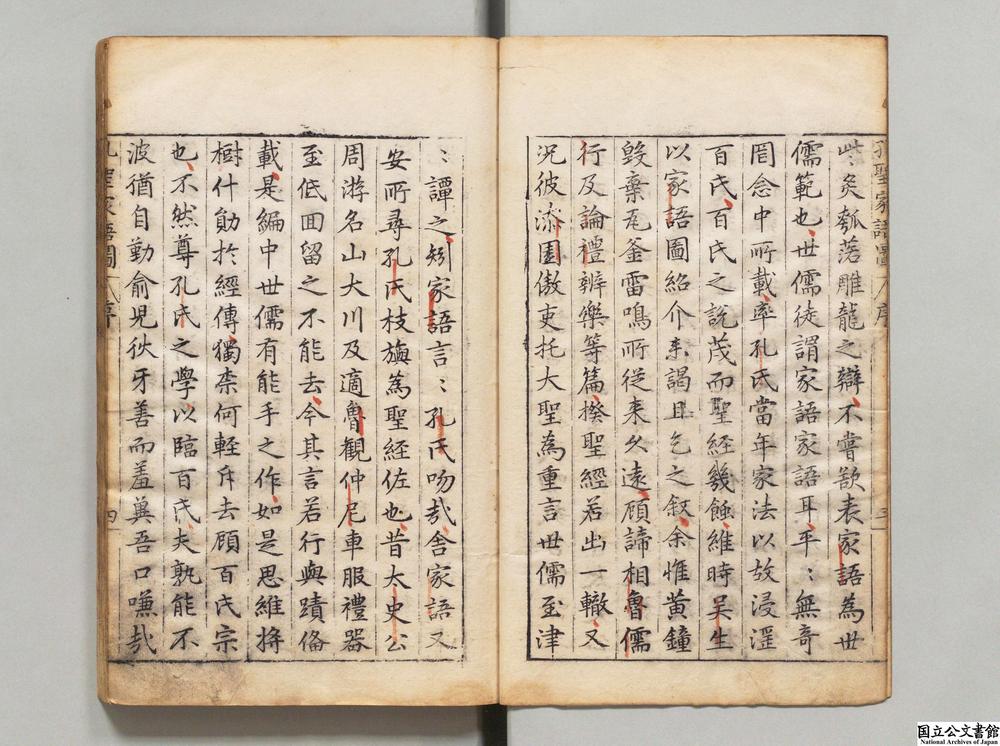 孔聖家語圖 序 三
些々炙瓠落雕龍之辯不嘗歆表家語為世
儒範也世儒徒謂家語家語耳平々無奇
罔念中所載率孔氏當年家法以故浸淫
百氏百氏之說茂而聖經幾蝕維時吳生
以家語圖紹介来謁且乞之叙余惟黃鐘
毀棄瓦釜雷鳴所從来久遠顧諦相魯儒
行及論禮辨樂等篇揆聖經若出一轍又
況彼漆園傲吏托大聖為重言世儒至津
々譚之矧家語言々孔氏吻哉舍家語又
安所尋孔氏枝旃為聖經佐也昔太史公
周游名山大川及適魯觀仲尼車服禮器
至低回留之不能去今其言若行與蹟俻
載是編中世儒有能手之作如是思維將
樹什勛於經傳獨柰何輕斥去顧百氏宗
也不然尊孔氏之學以臨百氏夫孰能不
波猶自勤俞兒狄牙善而羞與吾口嗛哉
孔聖家語圖 序 四
国立公文書館
National Archives of Japan